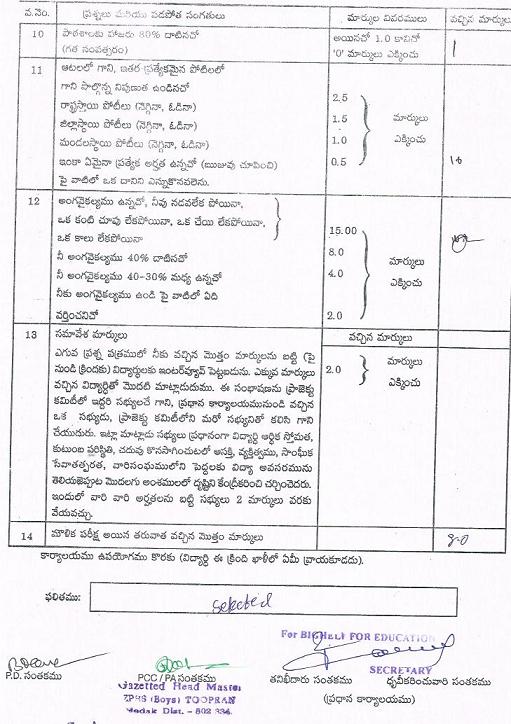 వ.నెం. ప్రశ్నలు మరియు వడపోత సంగతులు మార్కుల వివరములు వచ్చిన మార్కులు
10 పాఠశాలకు హాజరు 80% దాటినచో అయినచో 1.0 కానిచో 1
(గత సంవత్సరం) '0' మార్కులు ఎక్కించు
11 ఆటలలో గాని, ఇతర ప్రత్యేకమైన పోటిలలో
గాని పాల్గొన్న నిపుణత ఉండినచో
రాష్ట్రస్థాయి పోటీలు (నెగ్గినా, ఓడినా) 2.5
జిల్లాస్థాయి పోటీలు (నెగ్గినా, ఓడినా) 1.5 మార్కులు
మండలస్థాయి పోటీలు (నెగ్గినా, ఓడినా) 1.0 ఎక్కించు
ఇంకా ఏమైనా ప్రత్యేక అర్హత ఉన్నచో (ఋజువు చూపించి) 0.5
పై వాటిలో ఒక దానిని ఎన్నుకొనవలెను.
12 అంగవైకల్యము ఉన్నచో, నీవు నడవలేక పోయినా,
ఒక కంటి చూపు లేకపోయినా, ఒక చేయి లేకపోయినా, 15.00
ఒక కాలు లేకపోయినా
నీ అంగవైకల్యము 40% దాటినచో 8.0 మార్కులు
నీ అంగవైకల్యము 40-30% మధ్య ఉన్నచో 4.0 ఎక్కించు
నీకు అంగవైకల్యము ఉండి పై వాటిలో ఏది
వర్తించనిచో 2.0
13 సమావేశ మార్కులు వచ్చిన మార్కులు
ఎగువ ప్రశ్న పత్రములో నీకు వచ్చిన మొత్తం మార్కులను బట్టి (పై 2.0 మార్కులు
నుండి క్రిందకు) విద్యార్థులకు ఇంటర్వ్యూన్ పెట్టబడును. ఎక్కువ మార్కులు ఎక్కించు
వచ్చిన విద్యార్థితో మొదటి మాట్లాడుదుము. ఈ సంభాషణను ప్రాజెక్టు
కమిటీలో ఇద్దరి సభ్యులచే గాని, ప్రధాన కార్యాలయమునుండి వచ్చిన
ఒక సభ్యుడు, ప్రాజెక్టు కమిటీలోని మరో సభ్యునితో కలిసి గాని
చేయుదురు. ఇట్లా మాట్లాడు సభ్యులు ప్రధానంగా విద్యార్థి ఆర్థిక స్తోమత,
కుటుంబ పరిస్థితి, చదువు కొనసాగించుటలో ఆసక్తి, వ్యక్తిత్వము, సాంఘీక
సేవాతత్పరత, వారిసంఘములోని పెద్దలకు విద్యా అవసరమును
తెలియజెప్పుట మొదలగు అంశములలో దృష్టిని కేంద్రీకరించి చర్చించెదరు.
ఇందులో వారి వారి అర్హతలను బట్టి సభ్యులు 2 మార్కులు వరకు
వేయవచ్చు.
14 మౌలిక పరీక్ష అయిన తరువాత వచ్చిన మొత్తం మార్కులు 8-0
కార్యాలయము ఉపయోగము కొరకు (విద్యార్థి ఈ క్రింది ఖాళీలో ఏమీ వ్రాయకూడదు).
ఫలితము: selected
For BIGHELP FOR EDUCATION
SECRETARY
P.D. సంతకము PCC / PA సంతకము తనిఖీదారు సంతకము ధృవీకరించువారి సంతకము
Gazetted Head Master (ప్రధాన కార్యాలయము)
ZPHS (Boys) TOOPRAN
Medak Dist. - 502 334.